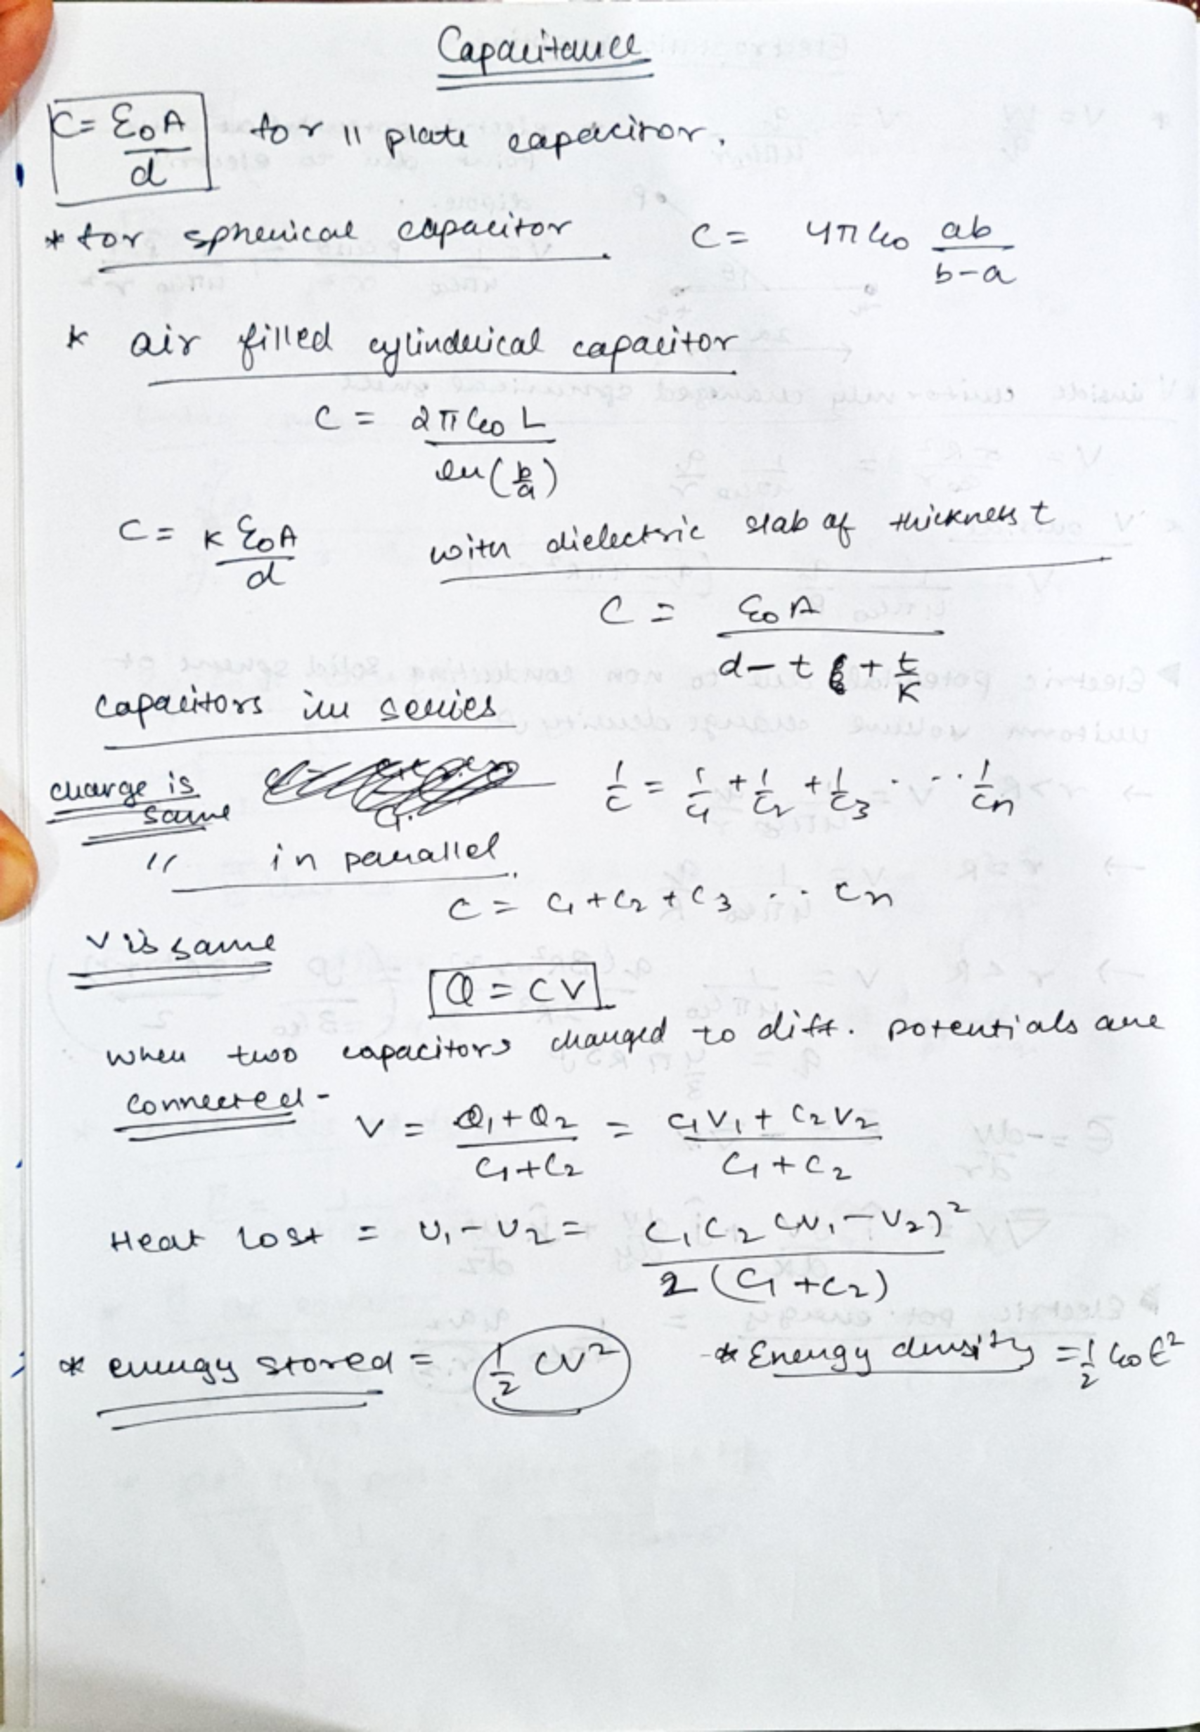 Capacitance
C = ε₀A/d for || plate capacitor.
* for spherical capacitor C = 4πε₀ ab/b-a
* air filled cylinderical capacitor
C = 2πε₀L/ln(b/a)
C = Kε₀A/d with dielectric slab of thickness t
C = ε₀A/d-t+t/K
capacitors in series
charge is same 1/C = 1/C₁ + 1/C₂ + 1/C₃ ... 1/Cn
" in parallel.
C = C₁+C₂+C₃ ... Cn
V is same
Q = CV
when two capacitors charged to diff. potentials are
connected-
V = Q₁+Q₂/C₁+C₂ = C₁V₁+C₂V₂/C₁+C₂
Heat lost = U₁-U₂ = C₁C₂(V₁-V₂)²/2(C₁+C₂)
* energy stored = 1/2 CV² * Energy density = 1/2 ε₀E²